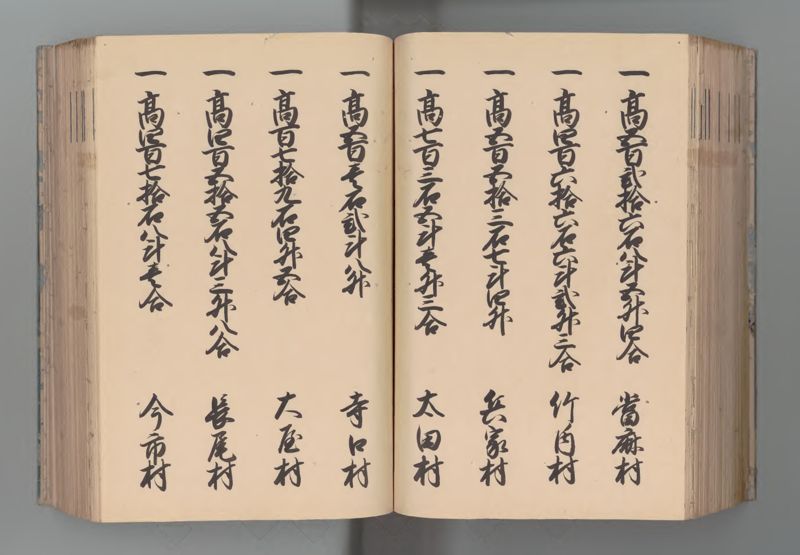 一 高五百弐拾六石八斗五升四合 當麻村
一 高四百六拾六石六斗弐升三合 竹内村
一 高五百五拾三石七斗四升 兵家村
一 高七百三石五斗壱升三合 太田村
一 高五百壱石弐斗八升 寺口村
一 高百七拾九石四升五合 大屋村
一 高四百五拾五石八斗三升八合 長尾村
一 高四百七拾石八斗壱合 今市村